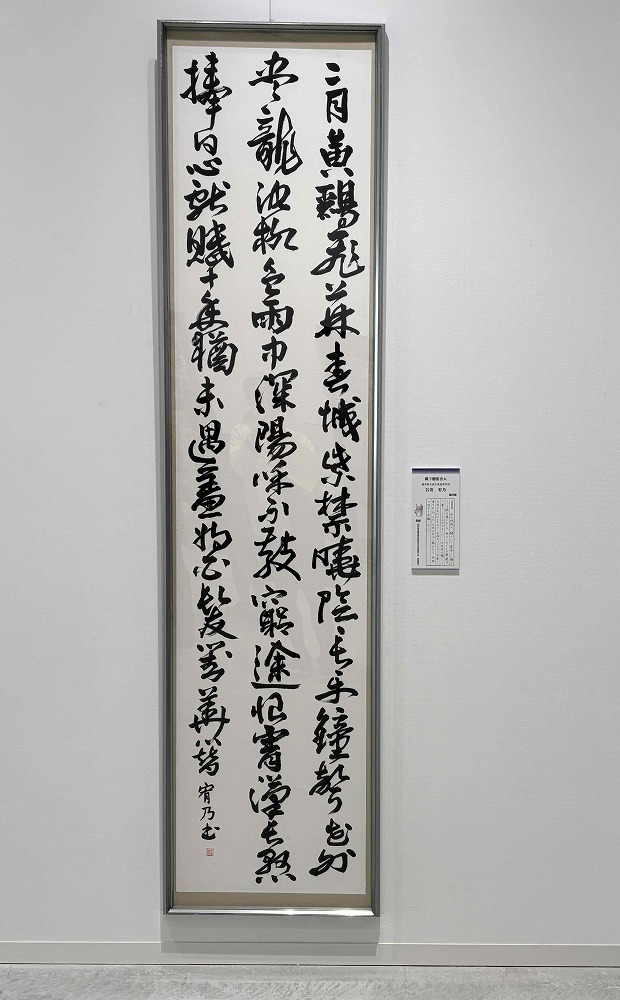 二月黄鸝飛上林春城紫禁曉陰々長樂鐘聲花外
盡龍池柳色雨中深陽和不散窮途恨霄漢長懸
捧日心献賦十年猶未遇羞将白髮對華簪 宥乃書